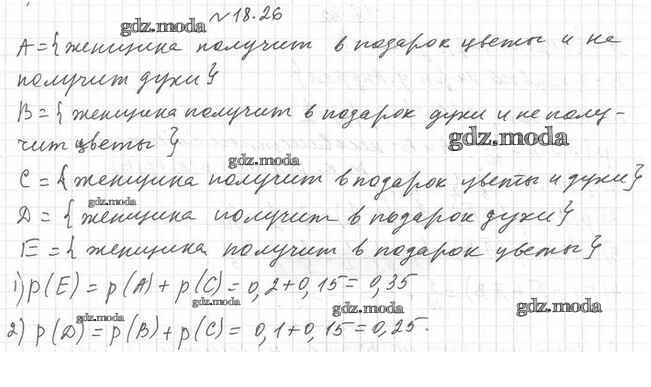 № 18.26
gdz.moda
A = { женщина получит в подарок цветы и не
gdz.moda
получит духи }
B = { женщина получит в подарок духи и не полу-
gdz.moda
чит цветы }
gdz.moda
C = { женщина получит в подарок цветы и духи }
gdz.moda
D = { женщина получит в подарок духи }
E = { женщина получит в подарок цветы }
1) p(E) = p(A) + p(C) = 0,2 + 0,15 = 0,35
gdz.moda
gdz.moda
gdz.moda
gdz.moda
2) p(D) = p(B) + p(C) = 0,1 + 0,15 = 0,25.